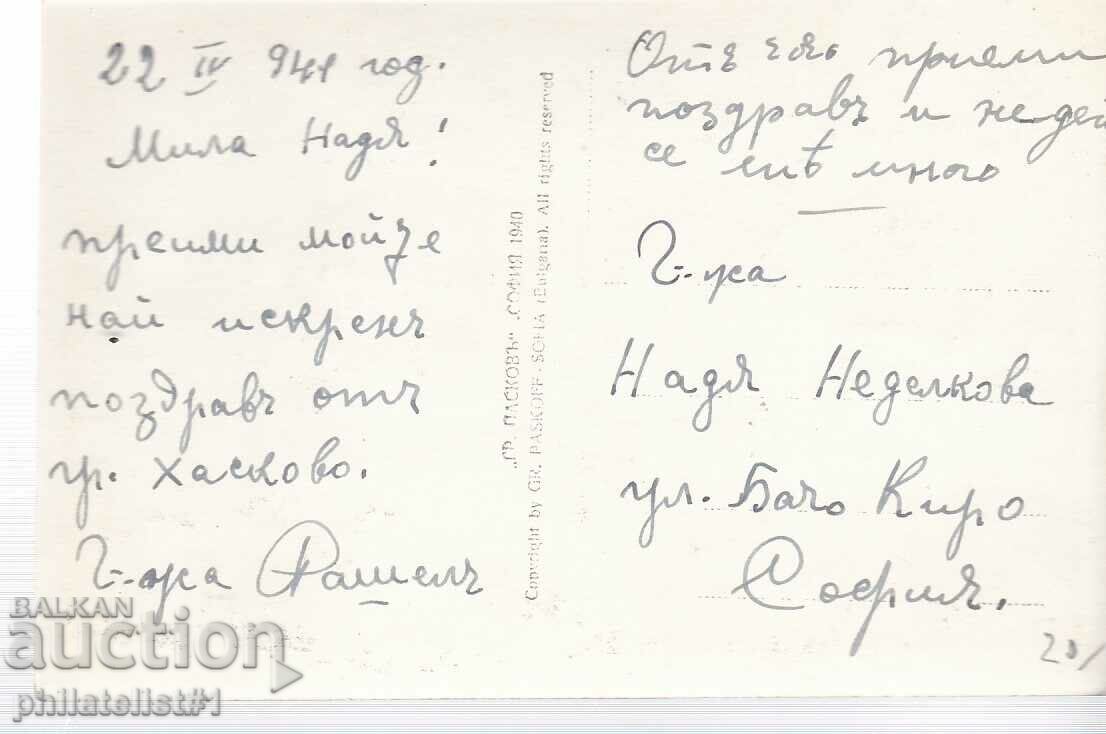 22 IV 941 год.
Мила Надя!
преими мойде
най искренъ
поздравъ отъ
гр. Хасково.
Г-жа Рашелъ
„ГР. ПАСКОВЪ" „СОФИЯ 1940
Copyright by GR. PASKOFF - SOFIA (Bulgaria). All rights reserved
Отъ приеми
поздравъ и недей
се много
Г-жа
Надя Неделкова
ул. Бачо Киро
София.
20/
BALKAN
auction
philatelist#1